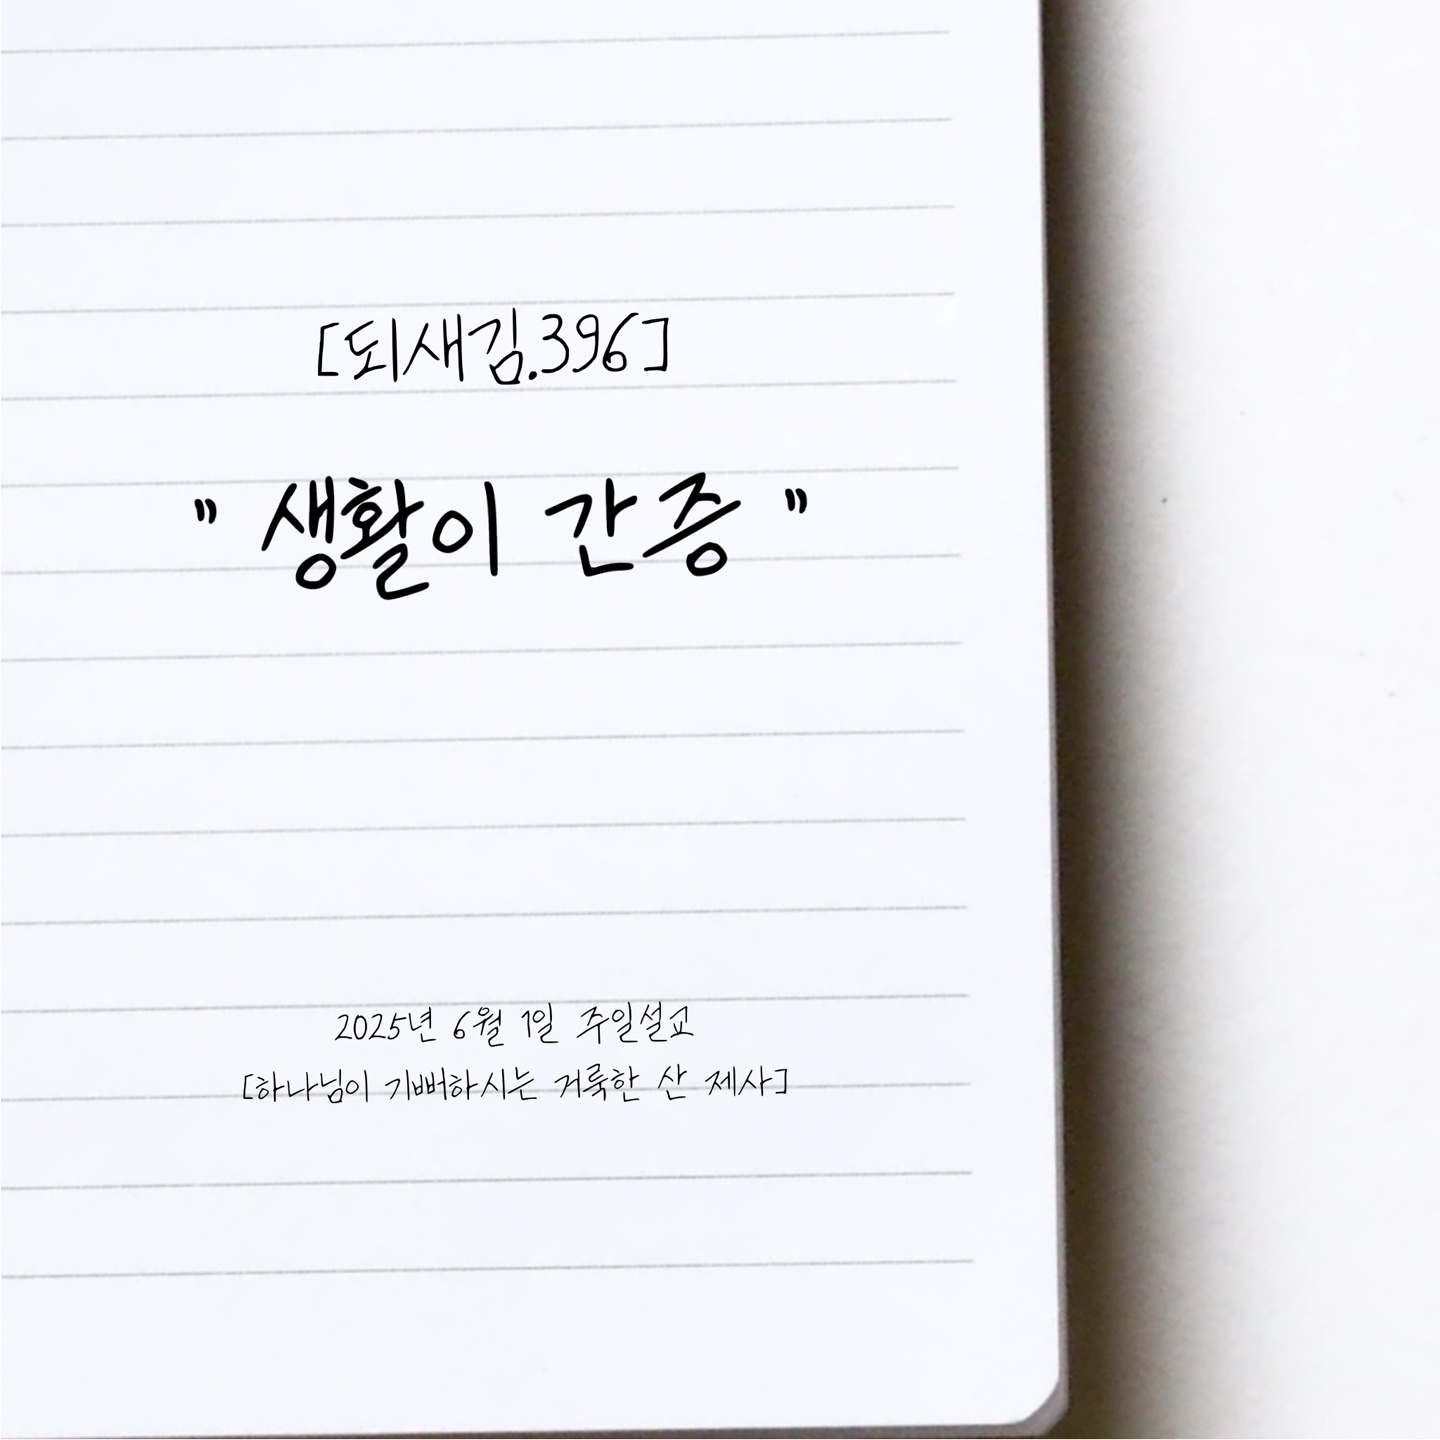 [되새김.396]
" 생활이 간증 "
2025년 6월 1일 주일설교
[하나님이 기뻐하시는 거룩한 산 제사]